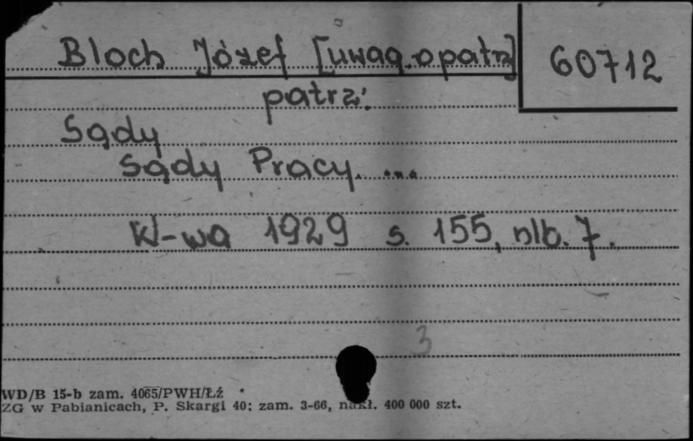 Bloch Józef [uwag. opatrz]
60712
patrz:
Sądy
Sądy Pracy ...
W-wa 1929 s. 155, nlb. 7.
3
WD/B 15-b zam. 4065/PWH/Łź
ZG w Pabianicach, P. Skargi 40; zam. 3-66, nakł. 400 000 szt.